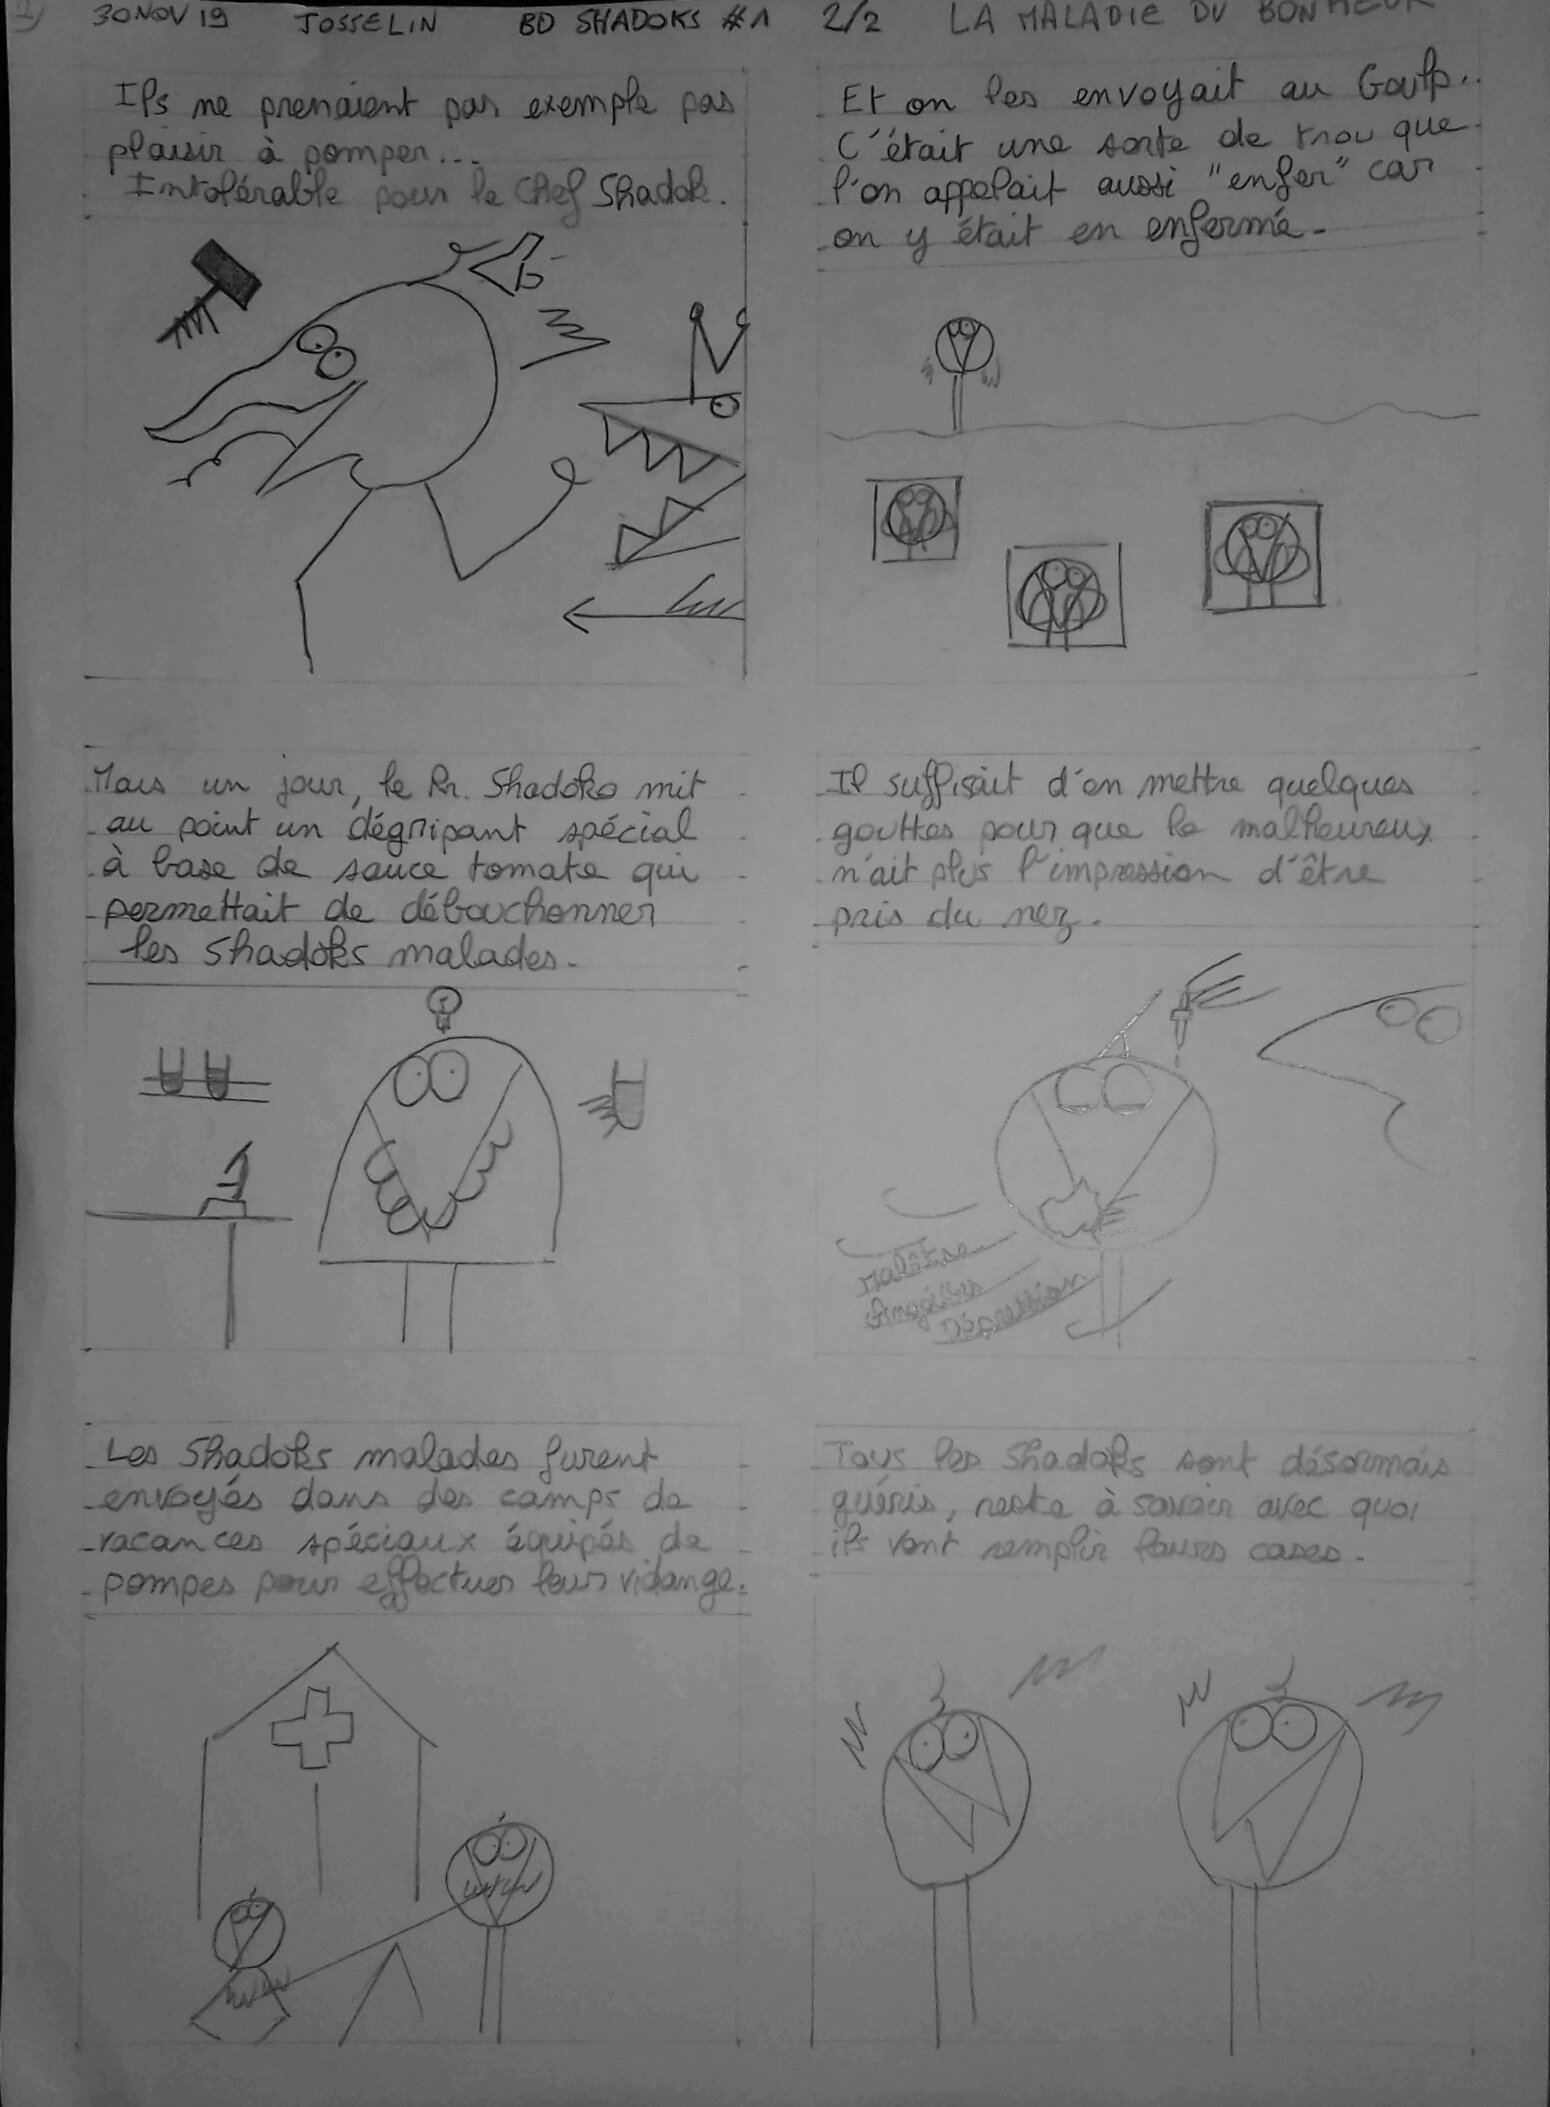 30 NOV 19 JOSSELIN BD SHADOKS #1 2/2 LA MALADIE DU BONHEUR
Ils ne prenaient par exemple pas
plaisir à pomper...
Intolérable pour le Chef Shadok.
Et on les envoyait au Goulp..
C'était une sorte de trou que
l'on appelait aussi "enfer" car
on y était en enfermé.
Mais un jour, le Pr. Shadoko mit
au point un dégripant spécial
à base de sauce tomate qui
permettait de débouchonner
les Shadoks malades.
Il suffisait d'en mettre quelques
gouttes pour que le malheureux
n'ait plus l'impression d'être
pris du nez.
Malêtre
Angoisses
Dépression
Les Shadoks malades furent
envoyés dans des camps de
vacances spéciaux équipés de
pompes pour effectuer leur vidange.
Tous les Shadoks sont désormais
guéris, reste à savoir avec quoi
ils vont remplir leurs cases.